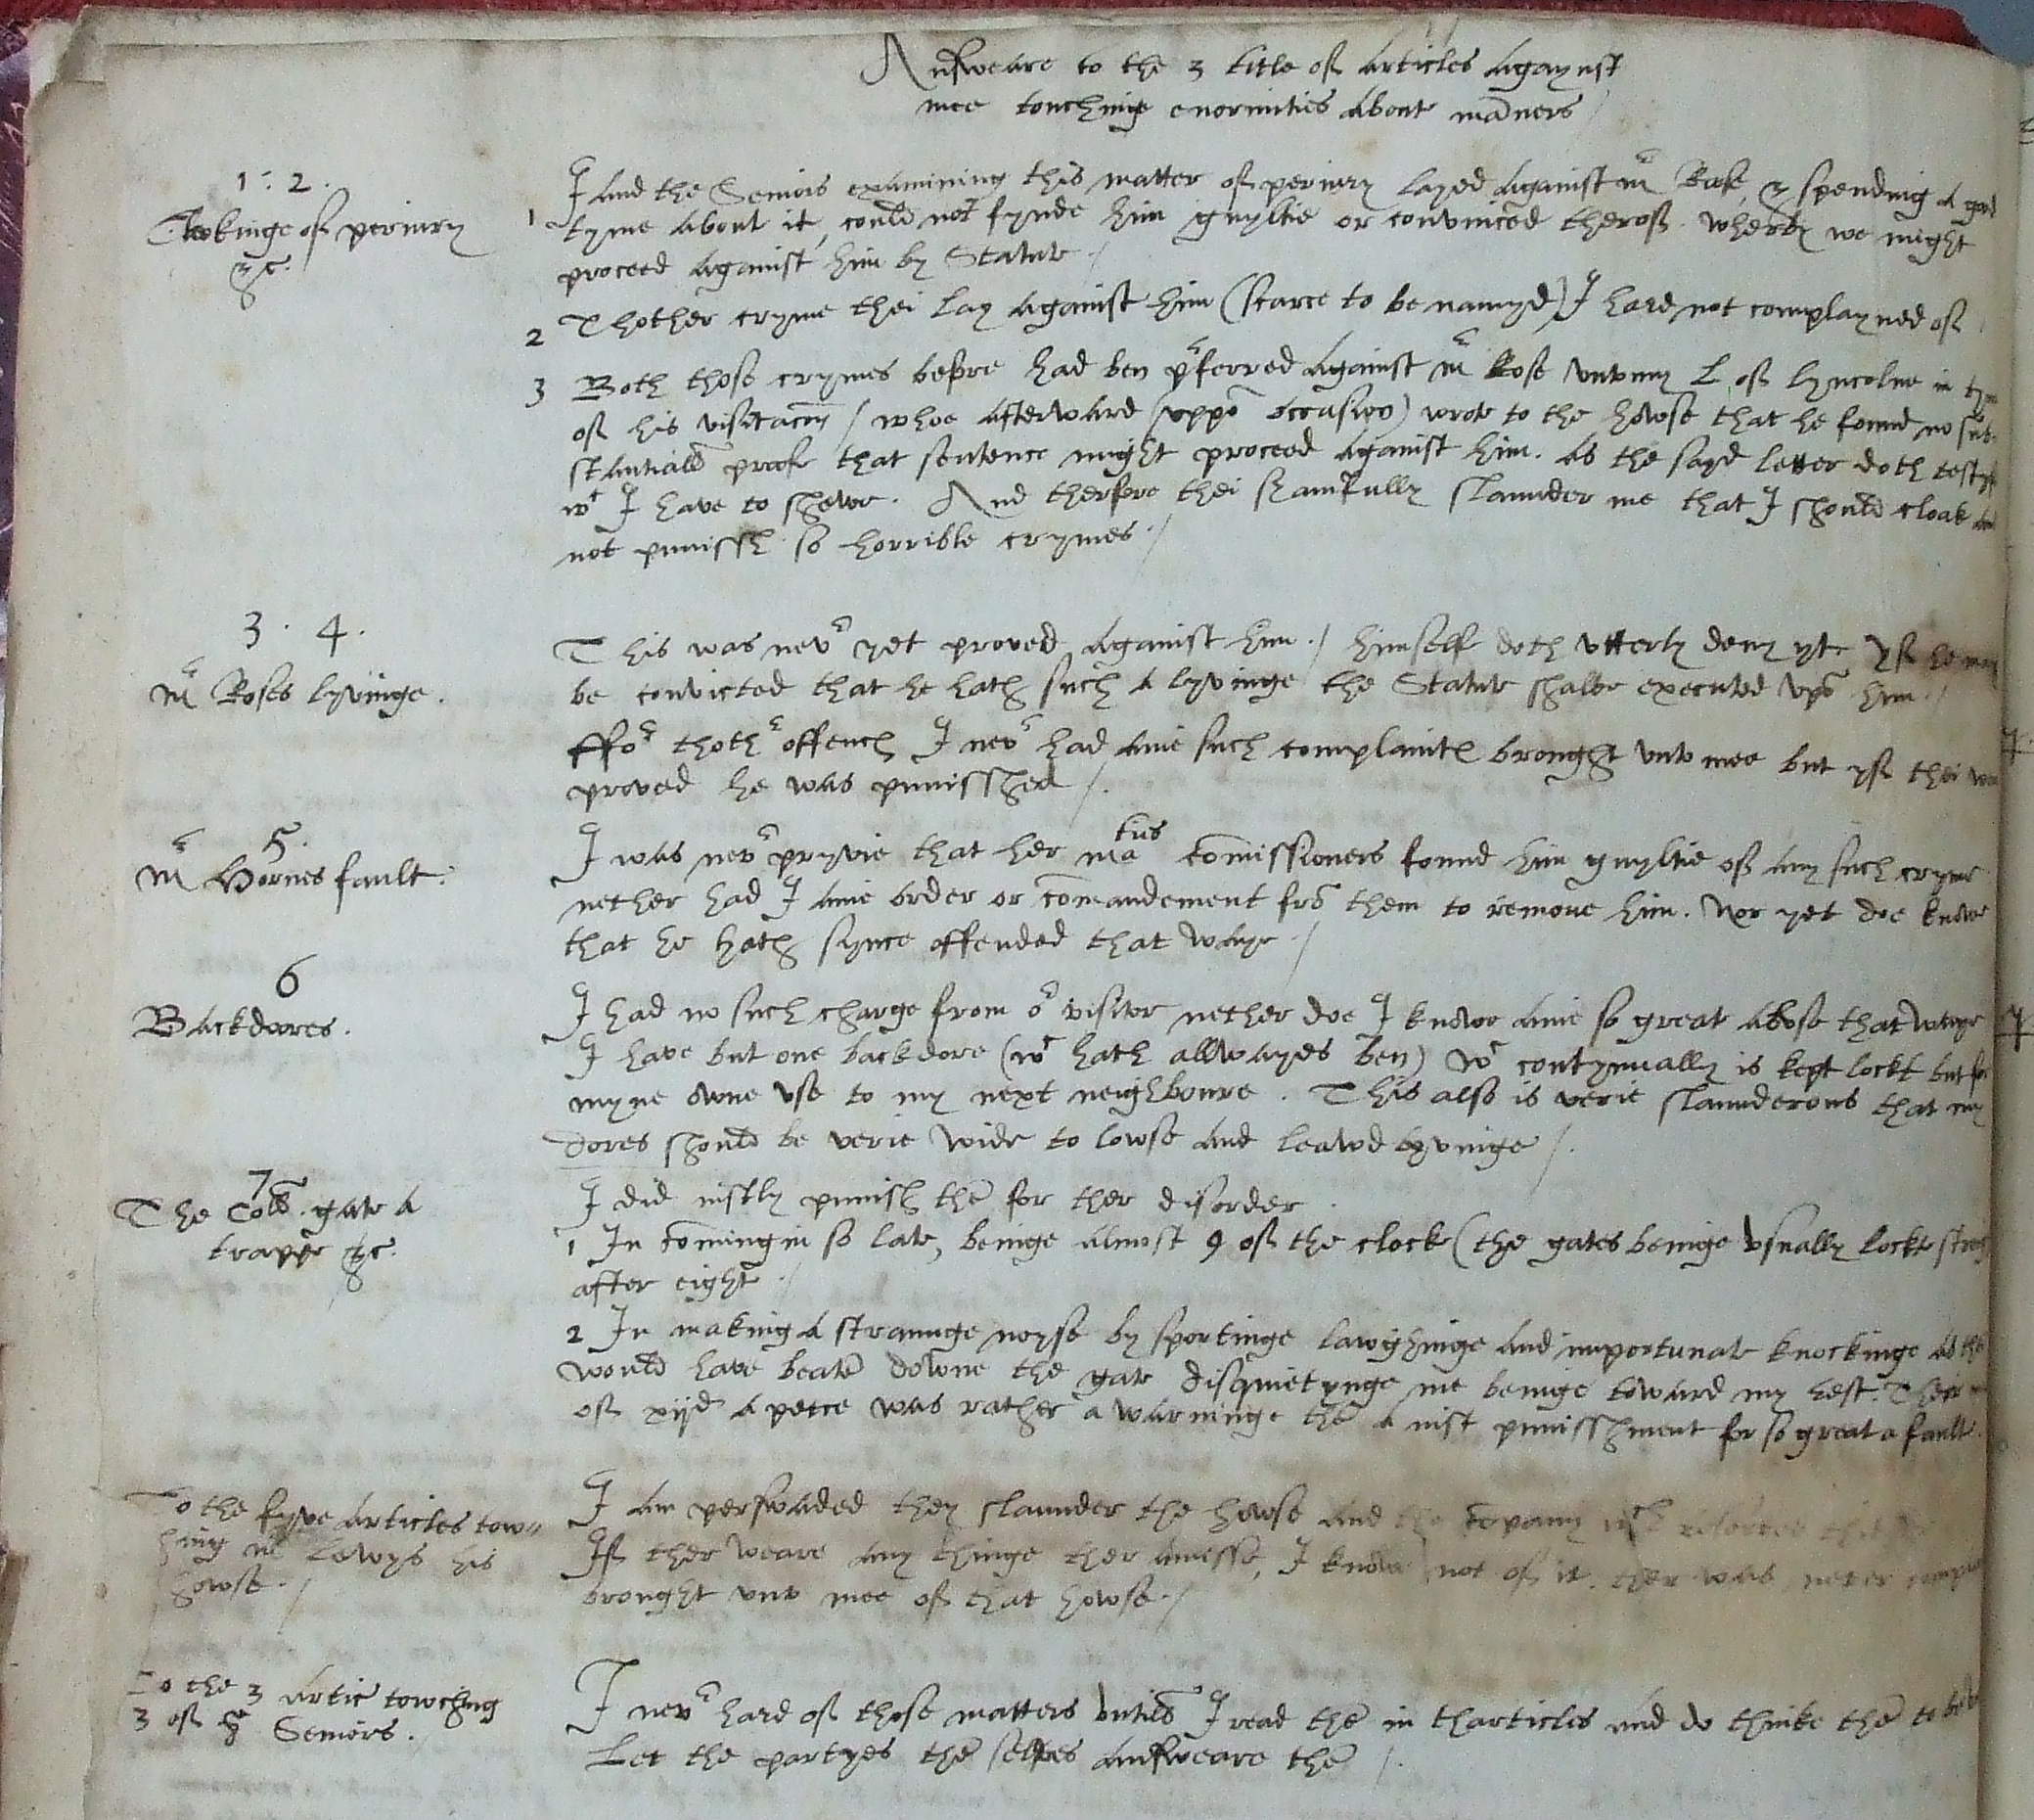 Answeare to the 3 title of Articles Agaynst
mee touchinge enormities About māners /
1 : 2 .
Clokinge of periury
&c.
I And the Seniors examining this matter of periury layed Against mr Rose, & spending A good
1 tyme About it, could not fynde him guyltie or convinced therof. wherby we might
proceed Against him by Statute /
2 Thother cryme thei lay Against him (scarce to be namyd) I hard not complayned of /
3 Both those crymes before had ben pferred Against mr Rose vnto my L of lyncolne in tyme
of his visitacon / whoe Afterward (vppō occasion) wrote to the howse that he found no sub-
stantiall proofe that sentence might proceed Against him. As the sayd letter doth testyfie
wc I have to shewe. And therfore thei shamfully slaunder me that I should cloak and
not punissh so horrible crymes. /
3 . 4 .
mr Roses lyvinge .
This was nevr yet proved Against him. / himself doth vtterly deny yt. yf he may
be convicted that he hath such A lyvinge the Statute shalbe executed vpō him. /
ffor thothr offences I nevr had Anie such complaintes brought vnto mee but yf thei were
proved he was punisshed /.
5
mr Hornes fault.
I was nevr pryvie that her matties comissioners found him guyltie of Any such cryme
nether had I Anie order or cōmandement frō them to remove him. Nor yet doe knowe
that he hath synce offended that waye. /
6
Backdores .
I had no such charge from or visitor nether doe I knowe Anie so great Abose that waye
I have but one backdore (wc hath allwayes ben) wc contynually is kept lockt but for
myne owne vse to my next neighboure . This also is verie slaunderous that my
dores should be verie wide to lowse And leawd lyvinge /.
7
The Coll. gate A
trappe &c.
I did iustly punish thē for ther disorder .
1 In cōming in so late, beinge Almost 9 of the clock (the gates beinge vsually lockt streight
after eight /
2 In making A straunge noyse by sportinge lawghinge And importunate knockinge As thei
would have beatē downe the gate disquietynge me beinge toward my rest. Their
of xijd A peece was rather a warninge thē A iust punisshment for so great a fault.
To the fyve Articles tow-
hing mr Lewys his
howse . /
I Am perswaded they slaunder the howse And the cōpany wch
If ther weare Any thinge ther Amisse, I knowe not of it. ther was never
brought vnto mee of that howse. /
To the 3 Articles towching
3 of ye Seniors .
I nevr hard of those matters vntill I read thē in tharticles And do thinke thē to be
Let the partyes thē selfes Answeare thē /.